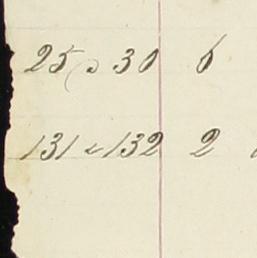 25 a 30 6
131 a 132 2